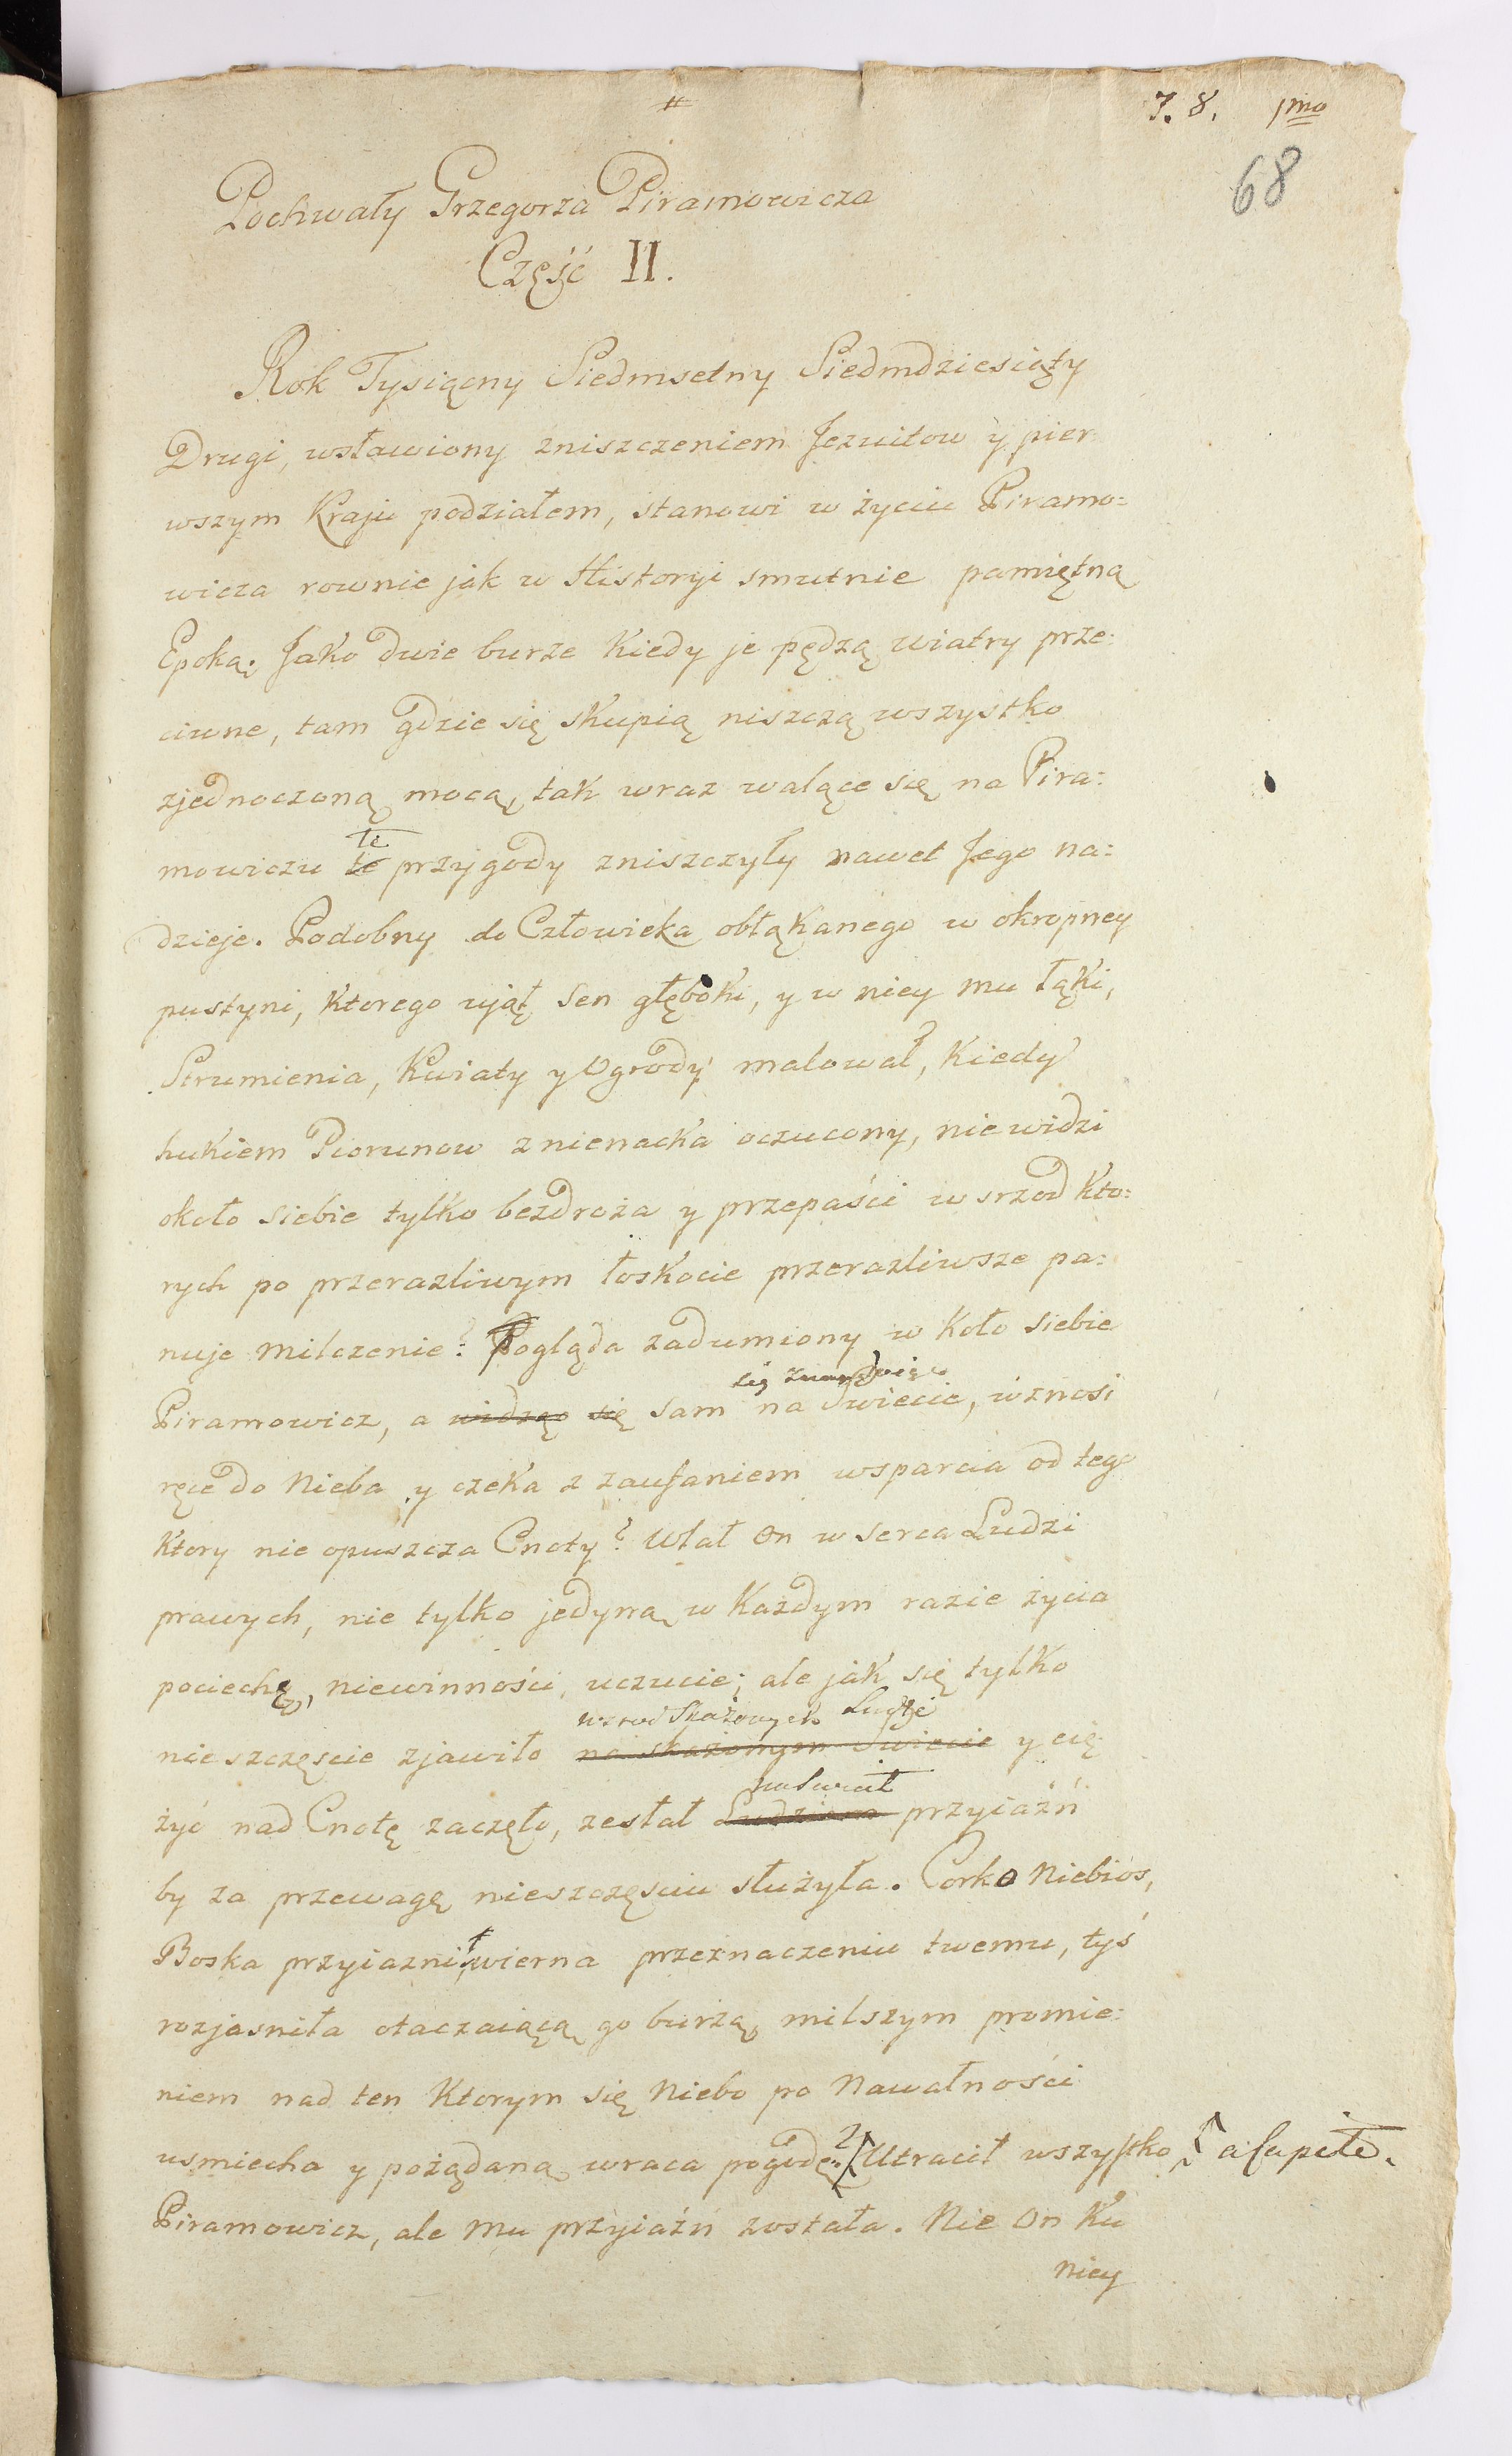 #
7. 8. 1mo
68
Pochwały Grzegorza Piramowicza
Część II.
Rok Tysiączny Siedmsetny Siedmdziesiąty
Drugi, wsławiony zniszczeniem Jezuitow y pier
wszym Kraju podziałem, stanowi w życiu Piramo:
wicza rownie jak w Historyi smutnie pamiętną
Epoką. Jako dwie burze kiedy je pędzą wiatry prze:
ciwne, tam gdzie się skupią niszczą wszystko
zjednoczoną mocą, tak wraz walące się na Pira:
te
mowiczu te przygody zniszczyły nawet Jego na:
dzieje. Podobny do Człowieka obłąkanego w okropney
pustyni, ktorego ujął sen głęboki, y w niey mu łąki,
Strumienia, Kwiaty y Ogrody malował, Kiedy
hukiem Piorunow znienacka oczucony, nie widzi
około siebie tylko bezdroża y przepaści w srzod kto:
rych po przerazliwym łoskocie przerazliwsze pa:
nuje milczenie? Pogląda zadumiony w koło siebie
się znayduiąc
Piramowicz, a widząc się sam na Swiecie, wznosi
ręce do Nieba y czeka z zaufaniem wsparcia od tego
ktory nie opuszcza Cnoty? Wlał On w serca Ludzi
prawych, nie tylko jedyną w Każdym razie życia
pociechę, niewinności, uczucie; ale jak się tylko
wsrod Skażonych Ludzi
nieszczęscie zjawiło na skażonym Swiecie y cię
na Swiat
żyć nad Cnotę zaczęło, zesłał Ludziom przyiaźń
by za przewagę nieszczęsciu służyła. Corko Niebios,
Boska przyiazni! wierna przeznaczeniu twemu, tyś
rozjasniła otaczaiącą go burzą, milszym promie:
niem nad ten Ktorym się Niebo po Nawałności
usmiecha y pożądaną wraca pogodę? [Utracił wszystko [ a Capite.
Piramowicz, ale mu przyiaźń została. Nie On Ku
niey